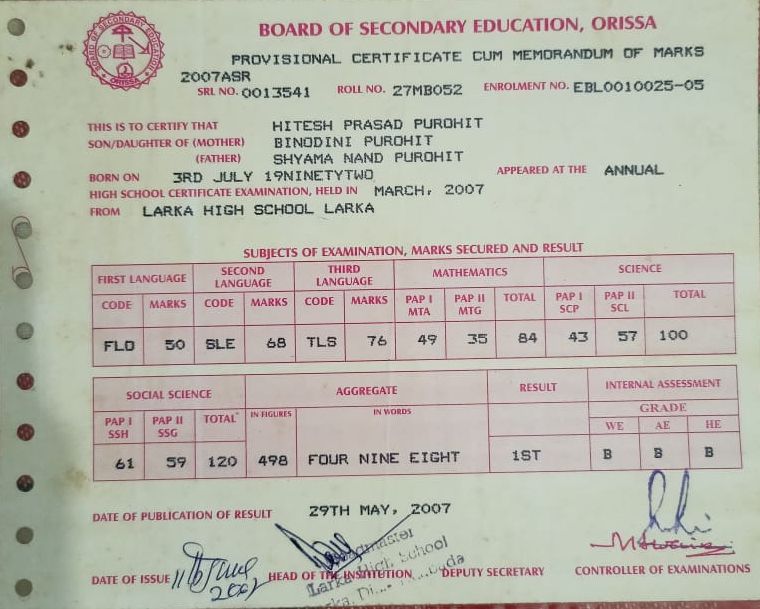 BOARD OF SECONDARY EDUCATION, ORISSA
PROVISIONAL CERTIFICATE CUM MEMORANDUM OF MARKS
2007ASR
SRL NO. 0013541 ROLL NO. 27MB052 ENROLMENT NO. EBL0010025-05
THIS IS TO CERTIFY THAT HITESH PRASAD PUROHIT
SON/DAUGHTER OF (MOTHER) BINODINI PUROHIT
(FATHER) SHYAMA NAND PUROHIT
BORN ON 3RD JULY 19NINETYTWO APPEARED AT THE ANNUAL
HIGH SCHOOL CERTIFICATE EXAMINATION, HELD IN MARCH, 2007
FROM LARKA HIGH SCHOOL LARKA
SUBJECTS OF EXAMINATION, MARKS SECURED AND RESULT
FIRST LANGUAGE SECOND LANGUAGE THIRD LANGUAGE MATHEMATICS SCIENCE
CODE MARKS CODE MARKS CODE MARKS PAP I MTA PAP II MTG TOTAL PAP I SCP PAP II SCL TOTAL
FLO 50 SLE 68 TLS 76 49 35 84 43 57 100
SOCIAL SCIENCE AGGREGATE RESULT INTERNAL ASSESSMENT
GRADE
PAP I SSH PAP II SSG TOTAL IN FIGURES IN WORDS WE AE HE
61 59 120 498 FOUR NINE EIGHT 1ST B B B
DATE OF PUBLICATION OF RESULT 29TH MAY, 2007
Headmaster
Larka High School
DATE OF ISSUE 11 2007 HEAD OF THE INSTITUTION DEPUTY SECRETARY CONTROLLER OF EXAMINATIONS